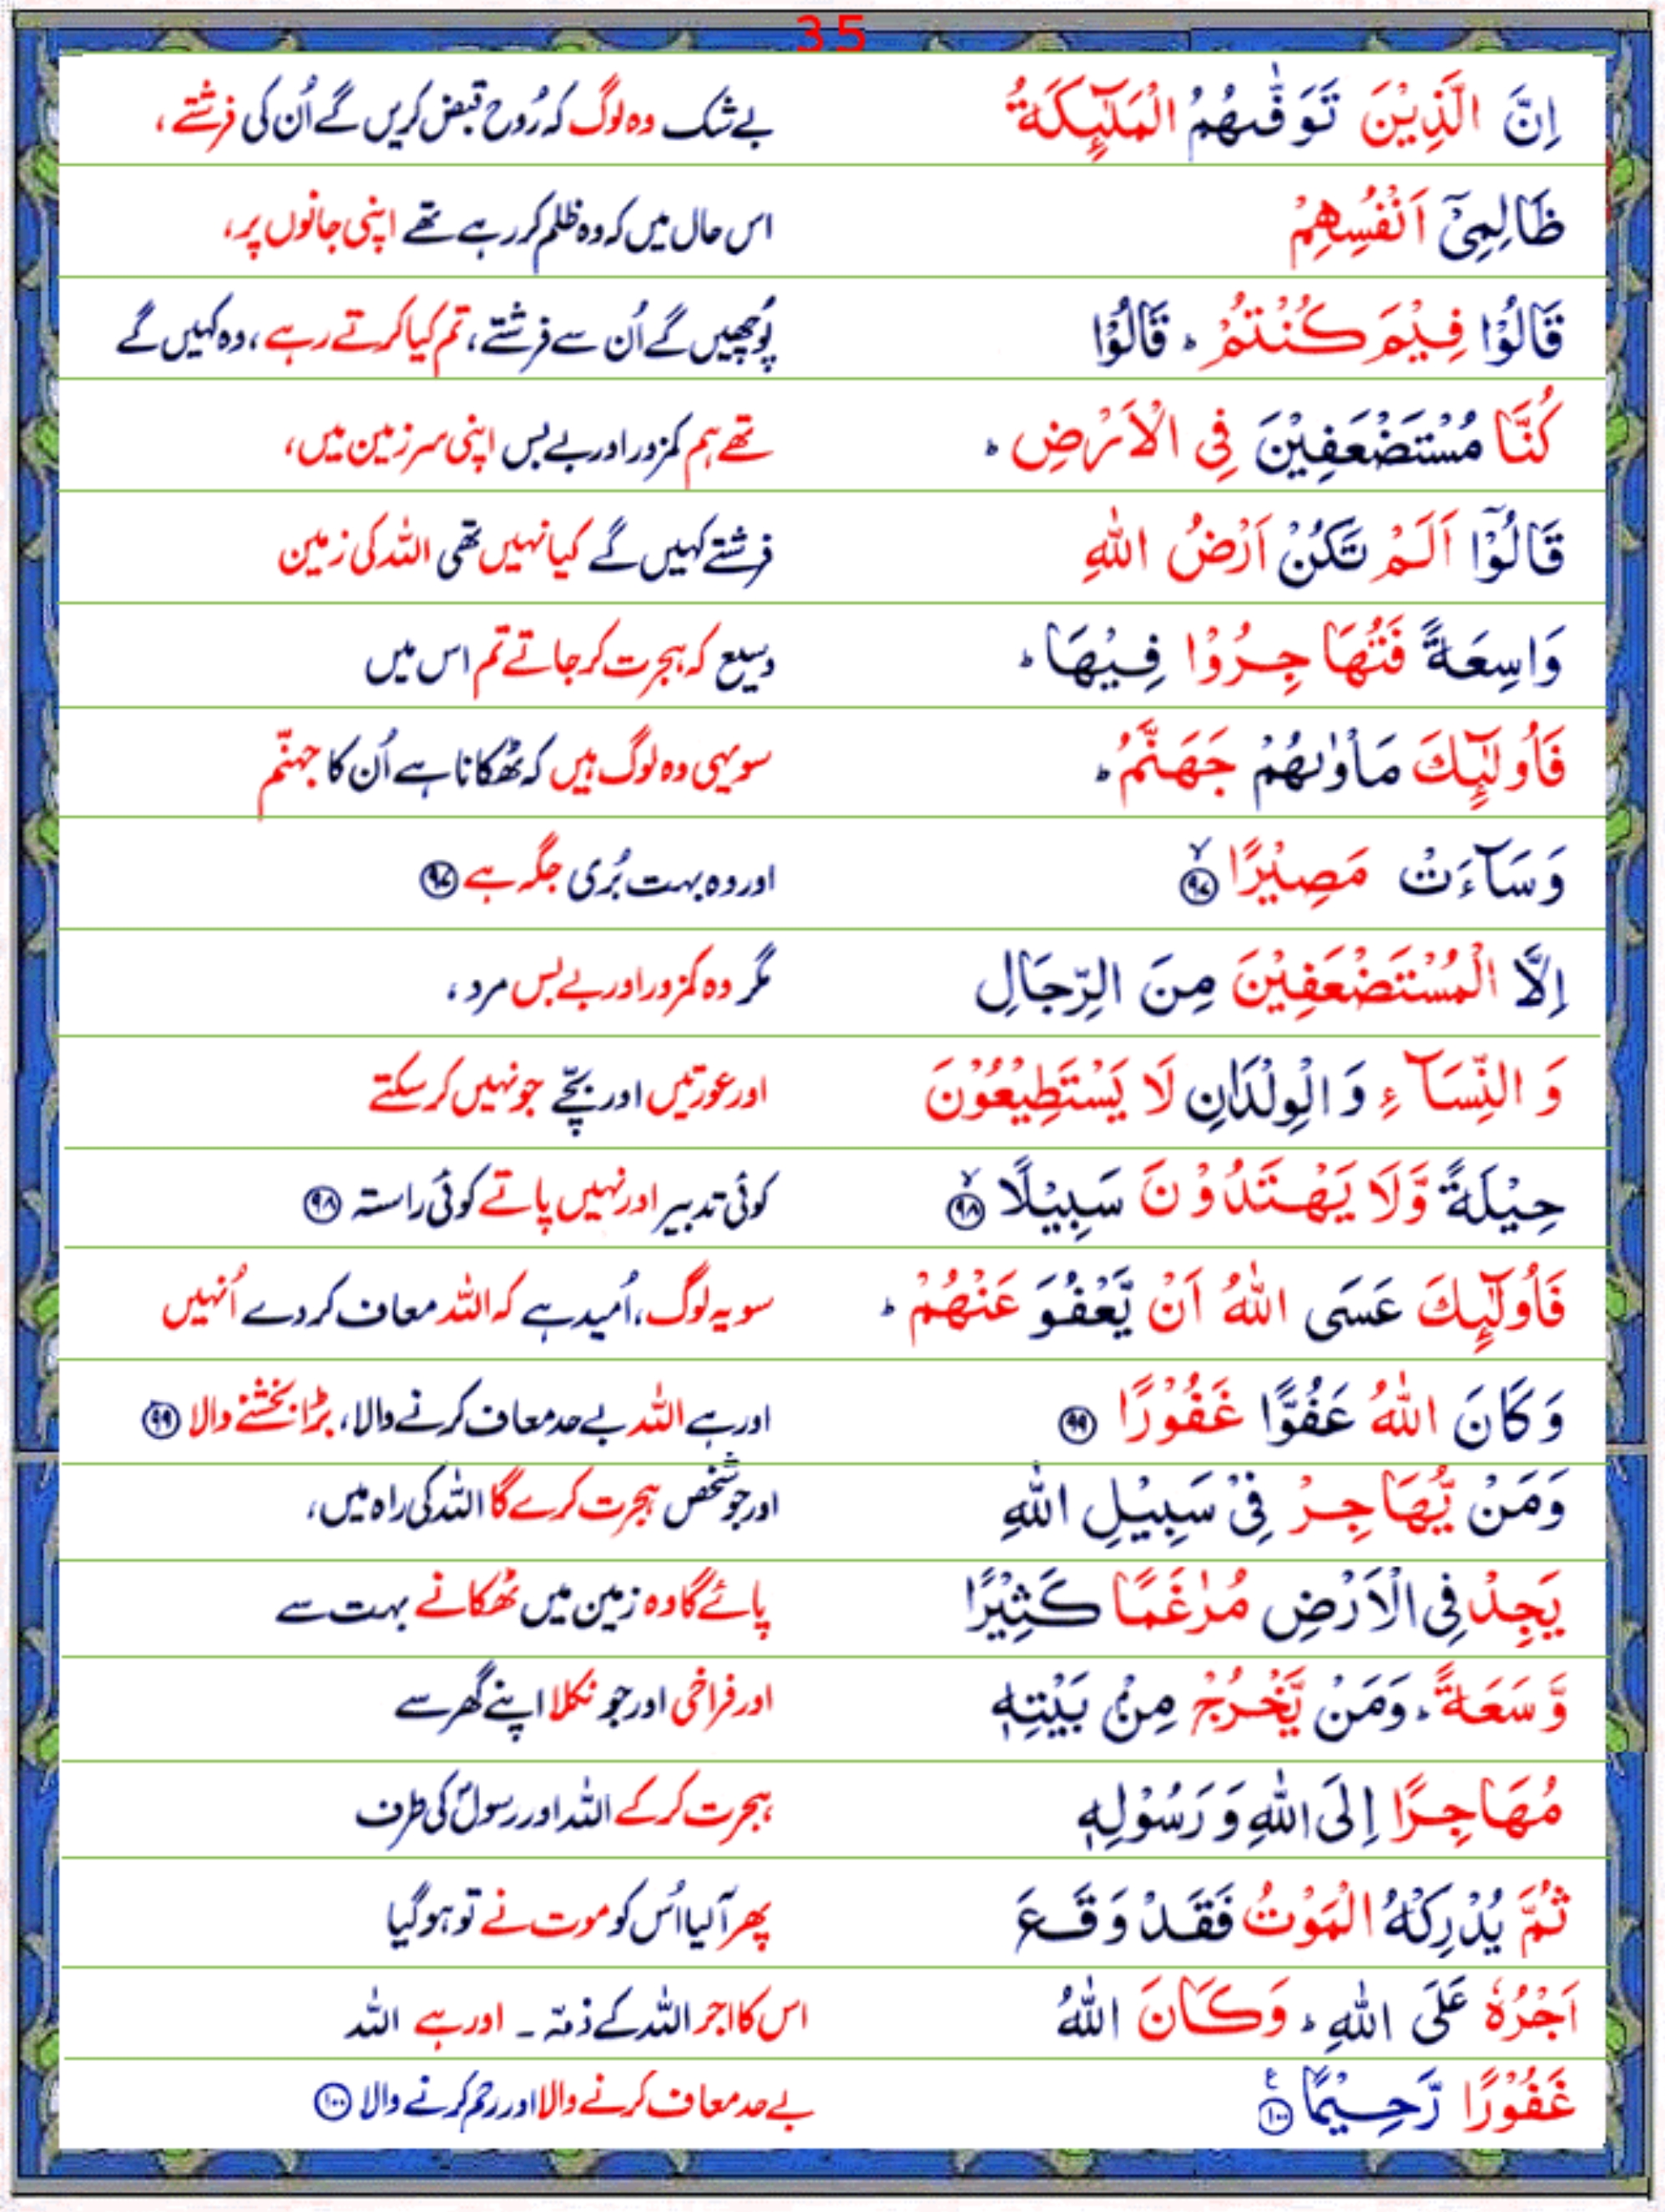 35
اِنَّ الَّذِيْنَ تَوَفّٰىهُمُ الْمَلٰٓئِكَةُ بے شک وہ لوگ کہ رُوح قبض کریں گے اُن کی فرشتے،
ظَالِمِىْٓ اَنْفُسِهِمْ اس حال میں کہ وہ ظلم کر رہے تھے اپنی جانوں پر،
قَالُوْا فِيْمَ كُنْتُمْ ؕ قَالُوْا پُوچھیں گے اُن سے فرشتے، تم کیا کرتے رہے، وہ کہیں گے
كُنَّا مُسْتَضْعَفِيْنَ فِى الْاَرْضِ ؕ تھے ہم کمزور اور بے بس اپنی سرزمین میں،
قَالُوْٓا اَلَمْ تَكُنْ اَرْضُ اللّٰهِ فرشتے کہیں گے کیا نہیں تھی اللہ کی زمین
وَاسِعَةً فَتُهَاجِرُوْا فِيْهَا ؕ وسیع کہ ہجرت کر جاتے تم اس میں
فَاُولٰٓئِكَ مَاْوٰىهُمْ جَهَنَّمُ ؕ سو یہی وہ لوگ ہیں کہ ٹھکانا ہے اُن کا جہنّم
وَسَآءَتْ مَصِيْرًا ۙ‏﴿۹۷﴾ اور وہ بہت بُری جگہ ہے ﴿۹۷﴾
اِلَّا الْمُسْتَضْعَفِيْنَ مِنَ الرِّجَالِ مگر وہ کمزور اور بے بس مرد،
وَ النِّسَآءِ وَ الْوِلْدَانِ لَا يَسْتَطِيْعُوْنَ اور عورتیں اور بچّے جو نہیں کر سکتے
حِيْلَةً وَّلَا يَهْتَدُوْنَ سَبِيْلًا ۙ‏﴿۹۸﴾ کوئی تدبیر اور نہیں پاتے کوئی راستہ ﴿۹۸﴾
فَاُولٰٓئِكَ عَسَى اللّٰهُ اَنْ يَّعْفُوَ عَنْهُمْ ؕ سو یہ لوگ، اُمید ہے کہ اللہ معاف کر دے اُنہیں
وَكَانَ اللّٰهُ عَفُوًّا غَفُوْرًا ﴿۹۹﴾ اور ہے اللہ بے حد معاف کرنے والا، بڑا بخشنے والا ﴿۹۹﴾
وَمَنْ يُّهَاجِرْ فِىْ سَبِيْلِ اللّٰهِ اور جو شخص ہجرت کرے گا اللہ کی راہ میں،
يَجِدْ فِى الْاَرْضِ مُرٰغَمًا كَثِيْرًا پائے گا وہ زمین میں ٹھکانے بہت سے
وَّسَعَةً ؕ وَمَنْ يَّخْرُجْ مِنْۢ بَيْتِهٖ اور فراخی اور جو نکلا اپنے گھر سے
مُهَاجِرًا اِلَى اللّٰهِ وَ رَسُوْلِهٖ ہجرت کر کے اللہ اور رسولؐ کی طرف
ثُمَّ يُدْرِكْهُ الْمَوْتُ فَقَدْ وَقَعَ پھر آ لیا اُس کو موت نے تو ہو گیا
اَجْرُهٗ عَلَى اللّٰهِ ؕ وَكَانَ اللّٰهُ اس کا اجر اللہ کے ذمّہ ۔ اور ہے اللہ
غَفُوْرًا رَّحِيْمًا ﴿۱۰۰﴾ ع بے حد معاف کرنے والا اور رحم کرنے والا ﴿۱۰۰﴾